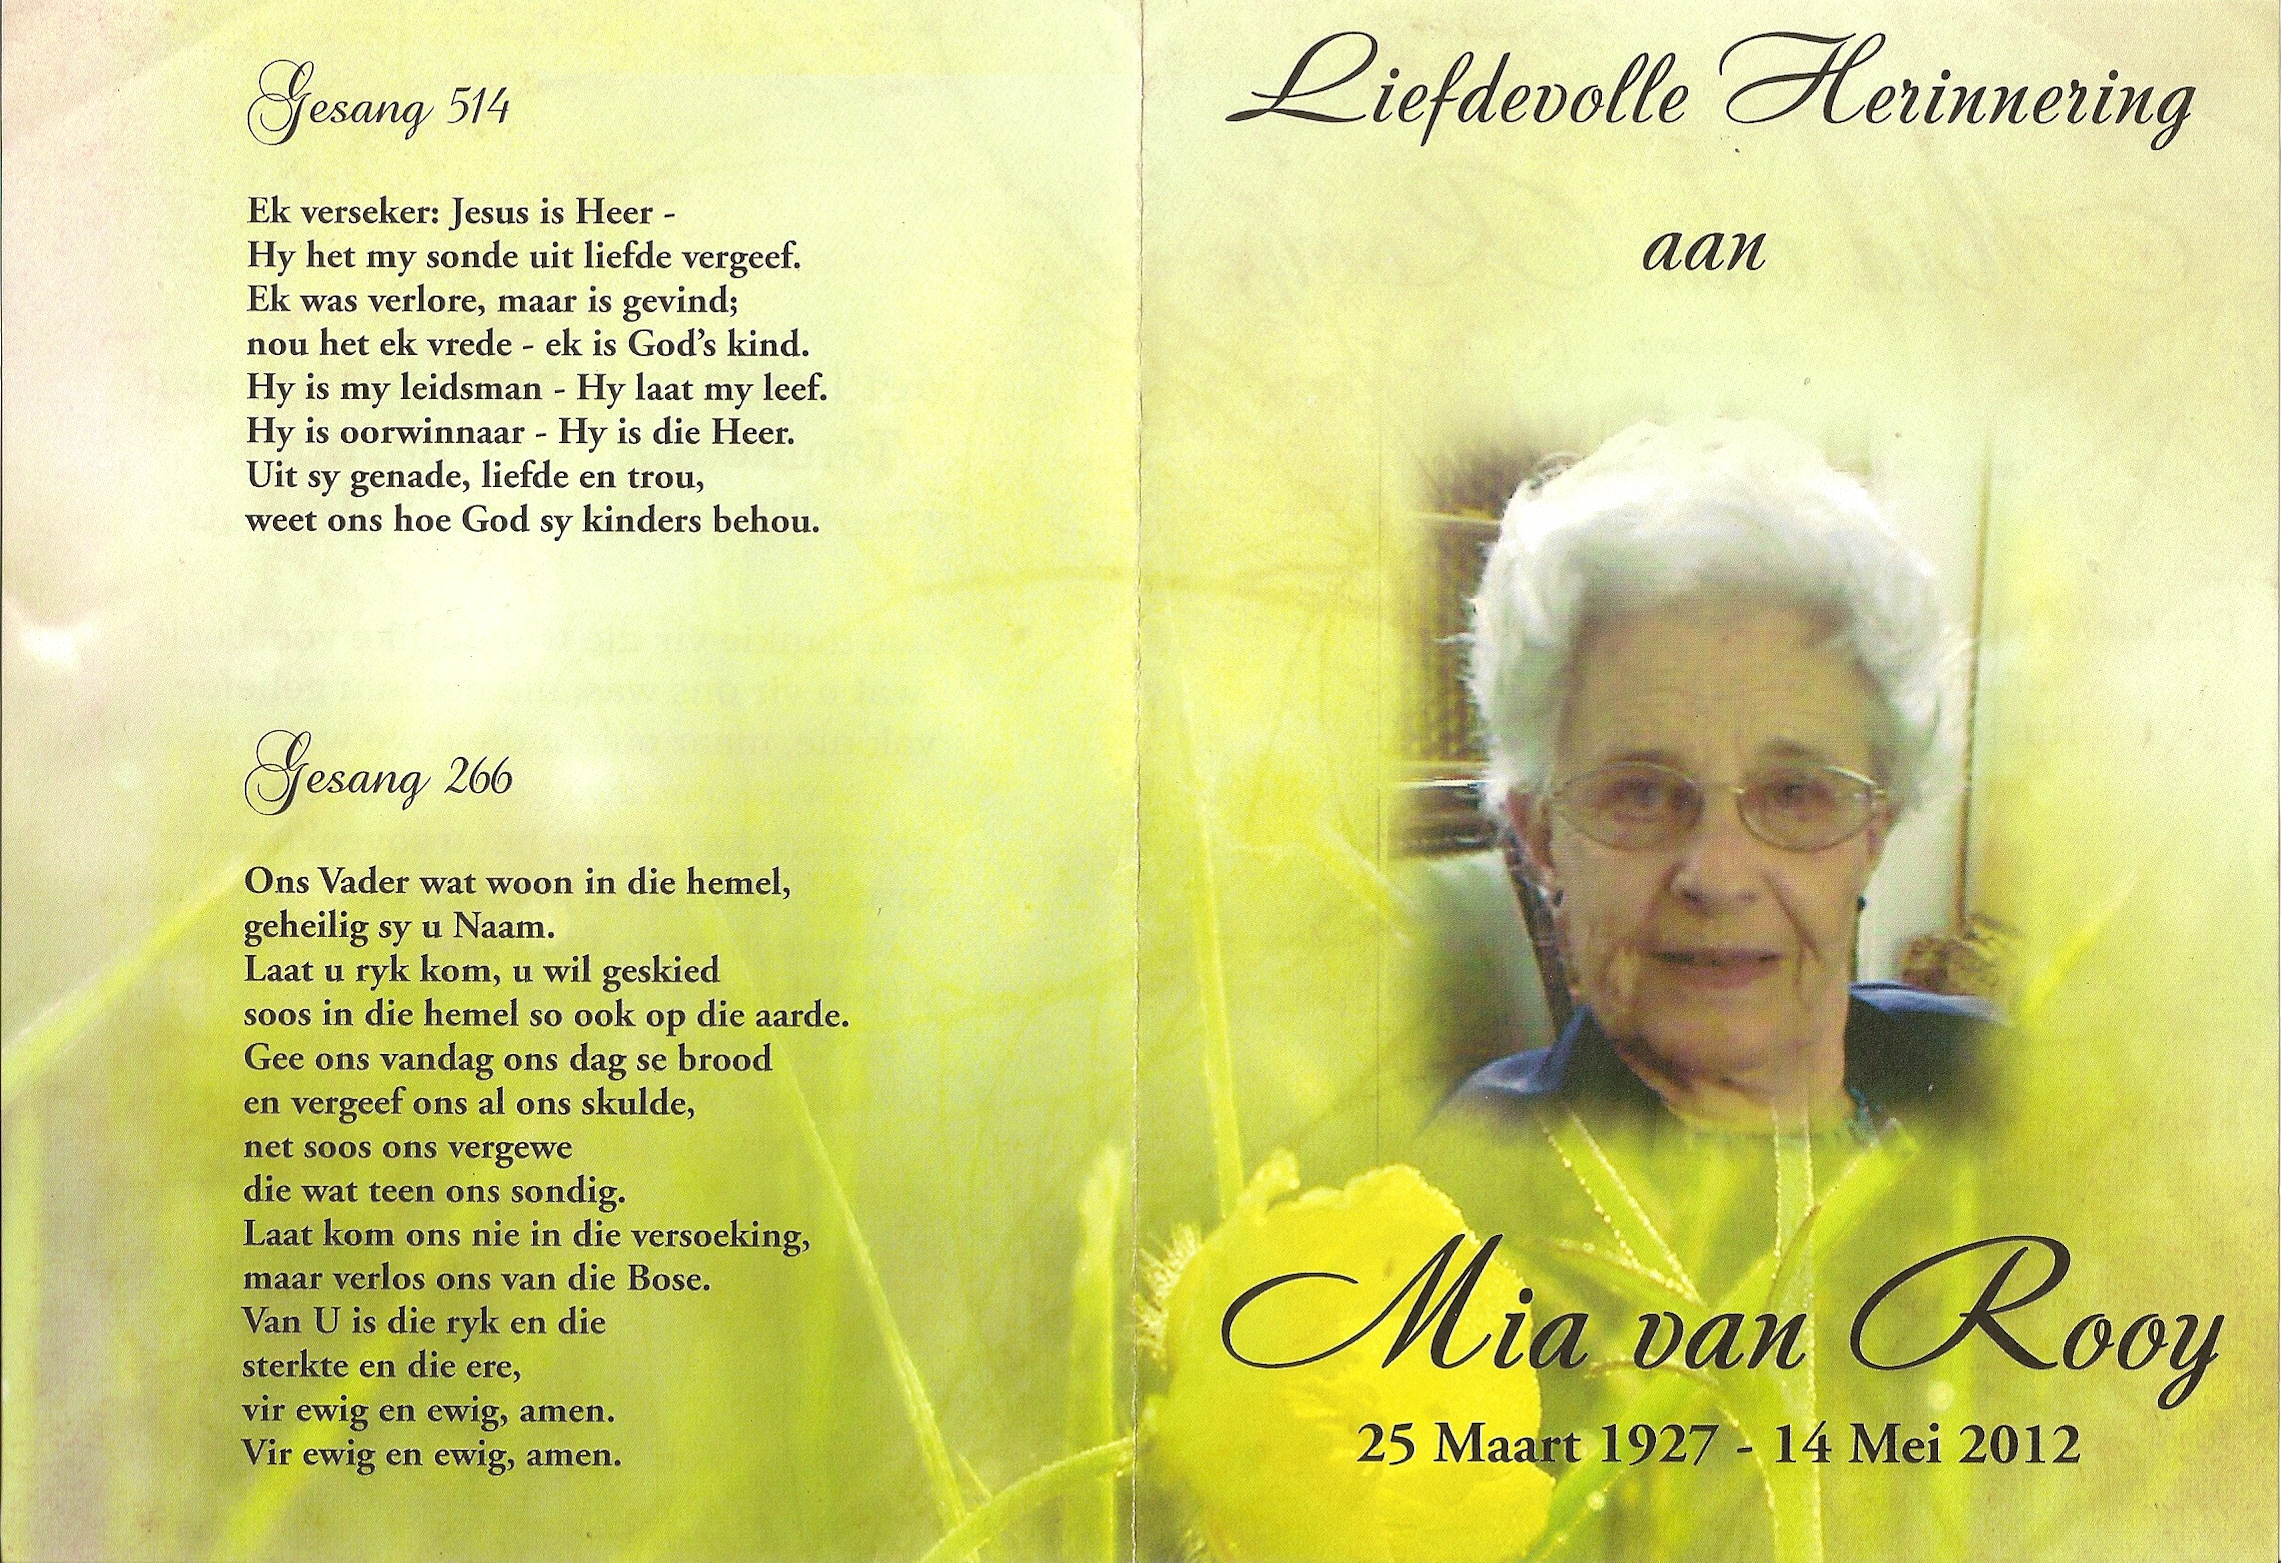 Gesang 514
Ek verseker: Jesus is Heer -
Hy het my sonde uit liefde vergeef.
Ek was verlore, maar is gevind;
nou het ek vrede - ek is God's kind.
Hy is my leidsman - Hy laat my leef.
Hy is oorwinnaar - Hy is die Heer.
Uit sy genade, liefde en trou,
weet ons hoe God sy kinders behou.
Gesang 266
Ons Vader wat woon in die hemel,
geheilig sy u Naam.
Laat u ryk kom, u wil geskied
soos in die hemel so ook op die aarde.
Gee ons vandag ons dag se brood
en vergeef ons al ons skulde,
net soos ons vergewe
die wat teen ons sondig.
Laat kom ons nie in die versoeking,
maar verlos ons van die Bose.
Van U is die ryk en die
sterkte en die ere,
vir ewig en ewig, amen.
Vir ewig en ewig, amen.
Liefdevolle Herinnering
aan
Mia van Rooy
25 Maart 1927 - 14 Mei 2012